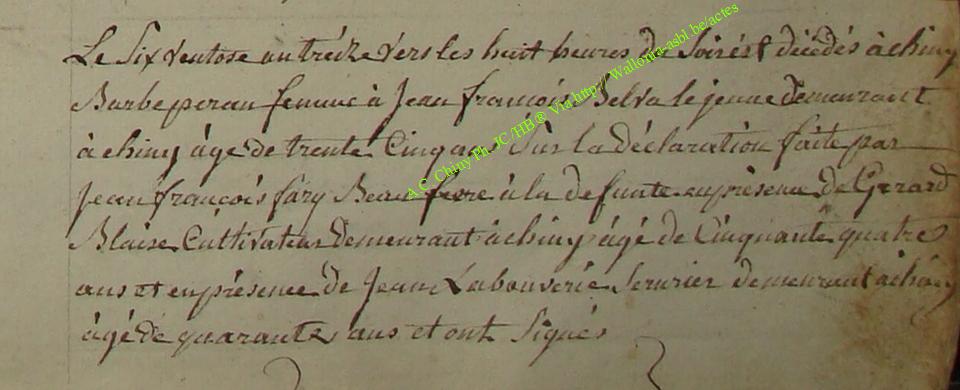 Le Six ventose an treize vers les huit heures du Soir est décédés à chiny
Barbe peran femme à Jean françois Selva le jeune demeurant
à chiny âgé de trente Cinq ans Sur la déclaration faite par
Jean françois fary Beau frere à la defunte en présence de Gerard
Blaise Cultivateur demeurant à chiny âgé de Cinquante quatre
ans et en présence de Jean Labouverie Serurier demeurant à chiny
âgé de quarante ans et ont Signés
A.C. Chiny Ph. JC /HB@ Via http// Wallonia-asbl.be/actes